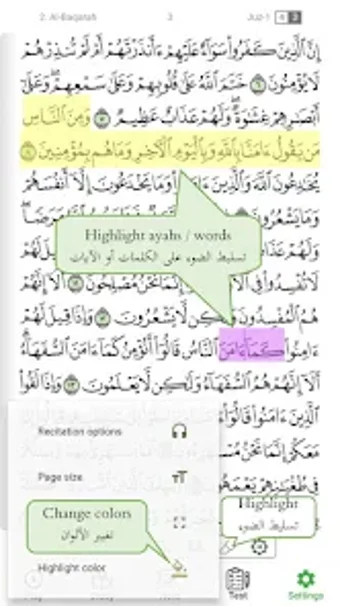 2. Al-Baqarah 3 Juz 1
إِنَّ ٱلَّذِينَ كَفَرُوا۟ سَوَآءٌ عَلَيْهِمْ ءَأَنذَرْتَهُمْ أَمْ لَمْ تُنذِرْهُمْ
لَا يُؤْمِنُونَ ٦ خَتَمَ ٱللَّهُ عَلَىٰ قُلُوبِهِمْ وَعَلَىٰ سَمْعِهِمْ ۖ وَعَلَىٰٓ
أَبْصَـٰرِهِمْ غِشَـٰوَةٌ ۖ وَلَهُمْ عَذَابٌ عَظِيمٌ ٧ وَمِنَ ٱلنَّاسِ
مَن يَقُولُ ءَامَنَّا بِٱللَّهِ وَبِٱلْيَوْمِ ٱلْـَٔاخِرِ وَمَا هُم بِمُؤْمِنِينَ ٨
يُخَـٰدِعُونَ ٱللَّهَ وَٱلَّذِينَ وَمَا يَخْدَعُونَ إِلَّآ أَنفُسَهُمْ
وَمَا يَشْعُرُونَ مَرَضًا ۖ
Highlight ayahs / words
تسليط الضوء على الكلمات أو الآيات
وَلَهُمْ
لَهُمْ
لَا تُفْسِدُوا۟ فِى نَحْنُ مُصْلِحُونَ ١١ أَلَآ إِنَّهُمْ
هُمُ ٱلْمُفْسِدُونَ لَّا يَشْعُرُونَ ١٢ وَإِذَا قِيلَ لَهُمْ
ءَامِنُوا۟ كَمَآ ءَامَنَ ٱلنَّاسُ قَالُوٓا۟ أَنُؤْمِنُ كَمَآ ءَامَنَ ٱلسُّفَهَآءُ ۗ
أَلَآ إِنَّهُمْ هُمُ ٱلسُّفَهَآءُ وَلَـٰكِن لَّا يَعْلَمُونَ ١٣ وَإِذَا لَقُوا۟
ٱلَّذِينَ ءَامَنُوا۟ قَالُوٓا۟
Recitation options
مَعَكُمْ إِنَّمَا نَحْنُ
Page size
فِى طُغْيَـٰنِهِمْ يَعْمَهُونَ
Change colors
تغيير الألوان
Highlight
تسليط الضوء
Highlight color
Test
Settings